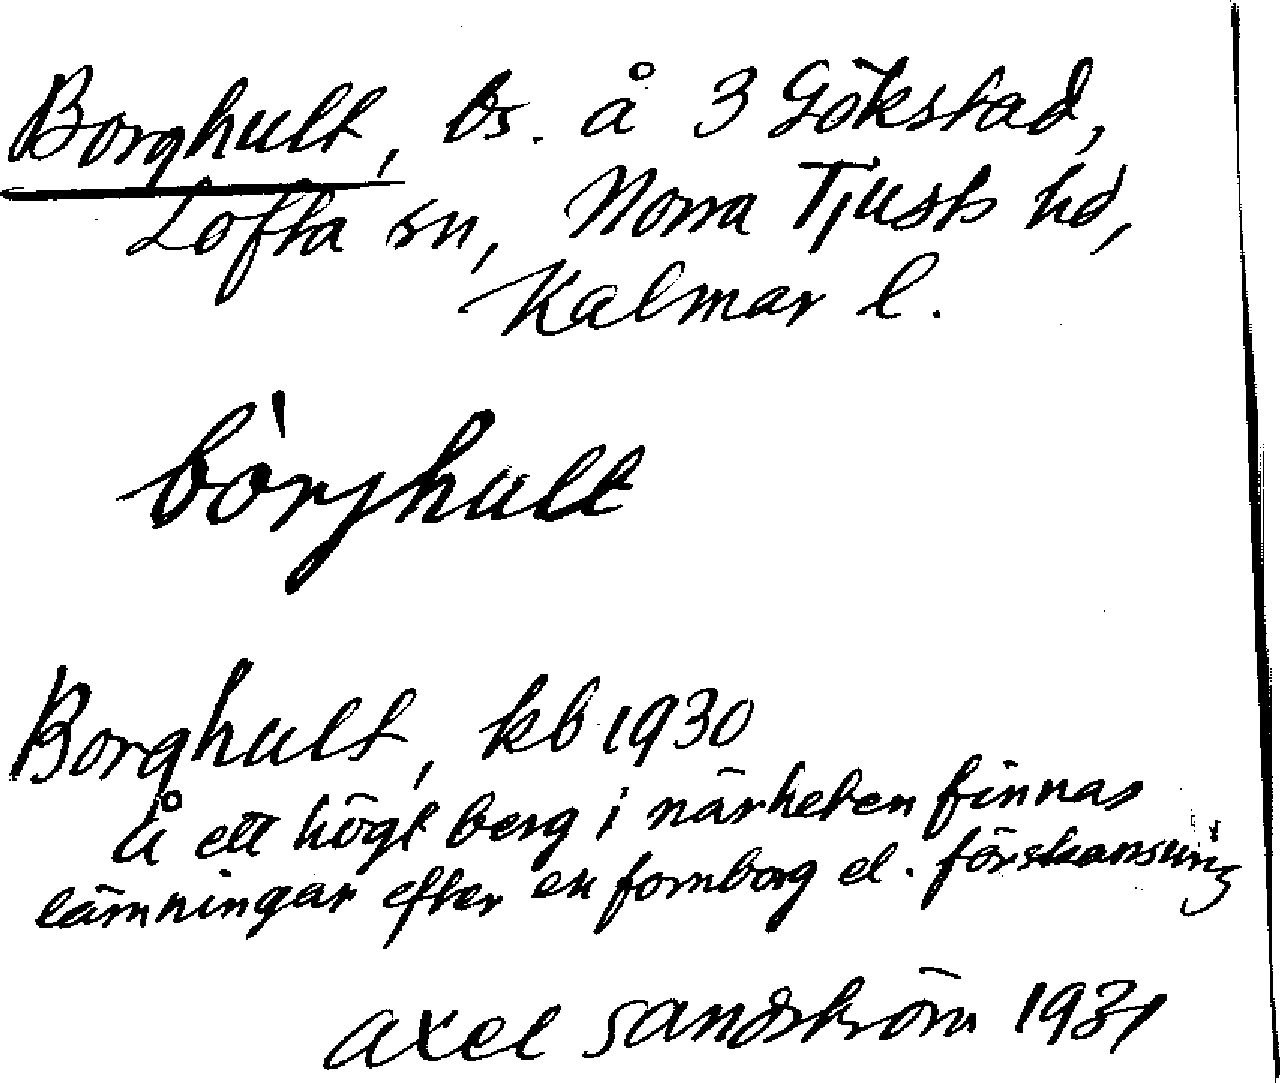 Borghult, ls. å 3 Gökstad,
Lofta sn, Norra Tjusts hd,
Kalmar l.
bòrjhult
Borghult, kb 1930
Å ett högt berg i närheten finnas
lämningar efter en fornborg el. förskansning
Axel Sandström 1931